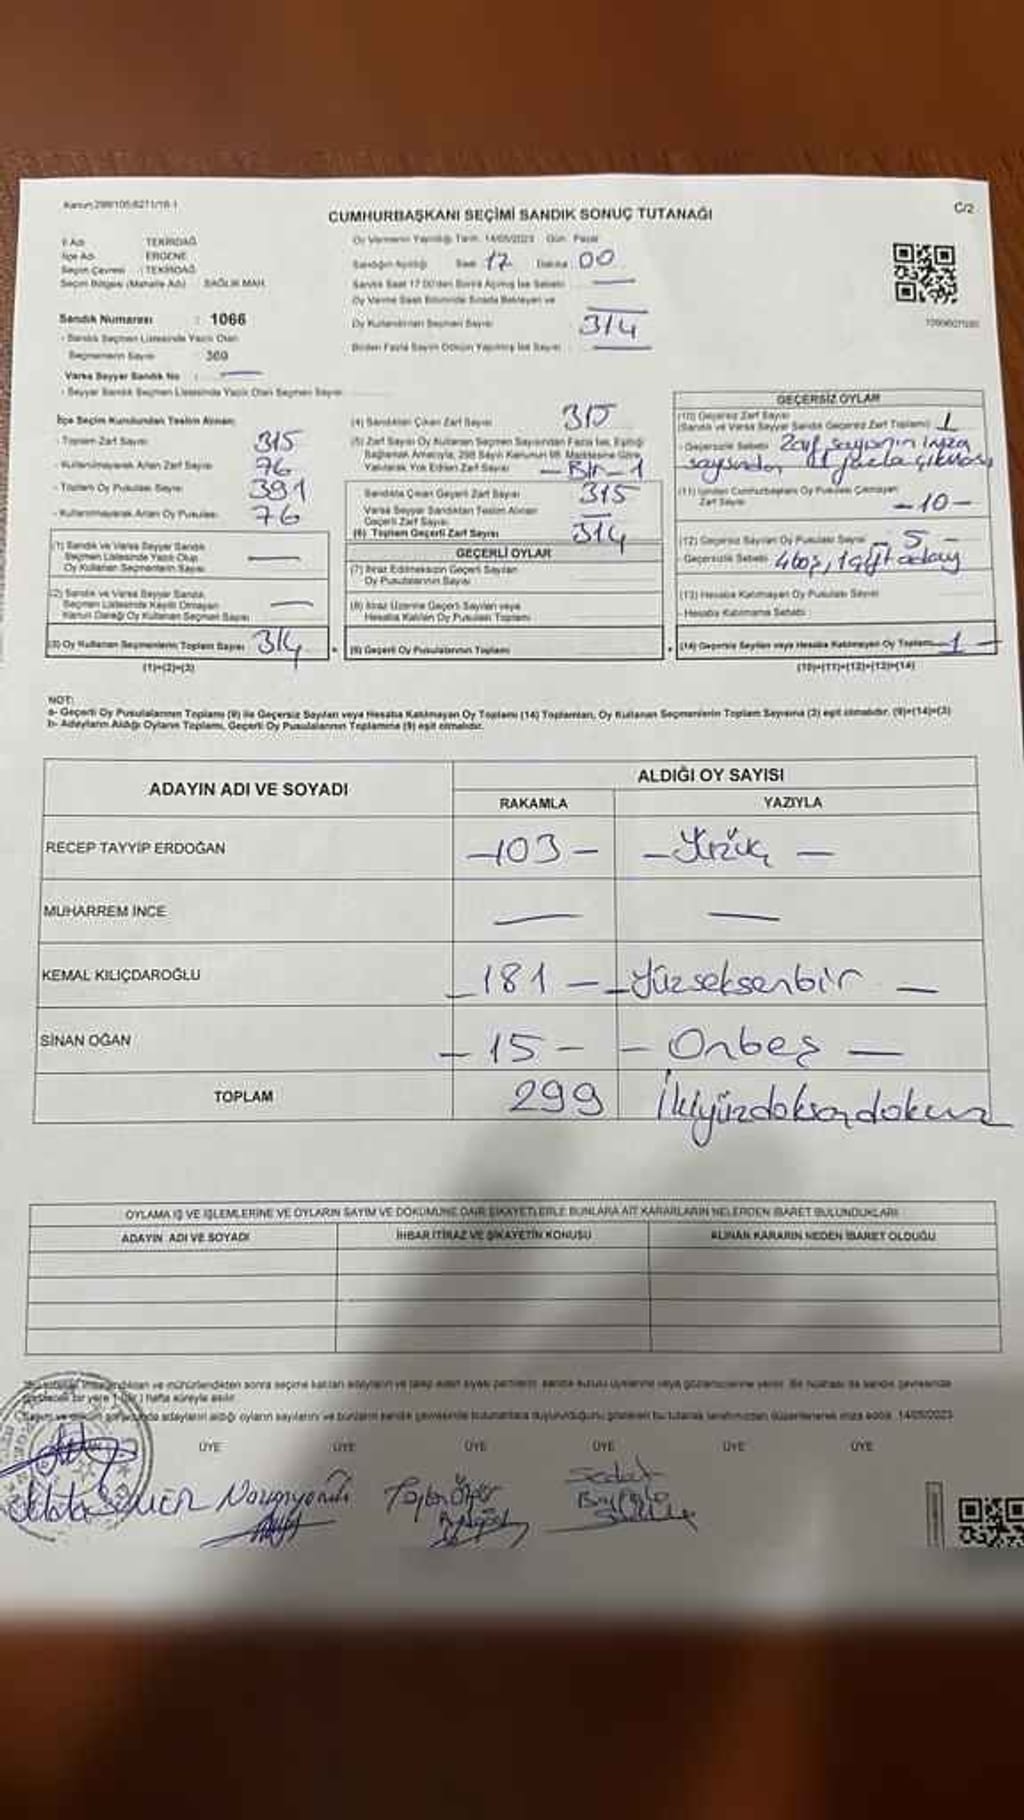 Kanun:298/105;6271/16-1
C/2
CUMHURBAŞKANI SEÇİMİ SANDIK SONUÇ TUTANAĞI
İl Adı TEKİRDAĞ
İlçe Adı ERGENE
Seçim Çevresi : TEKİRDAĞ
Seçim Bölgesi (Mahalle Adı) SAĞLIK MAH.
Sandık Numarası : 1066
- Sandık Seçmen Listesinde Yazılı Olan
Seçmenlerin Sayısı 369
Varsa Seyyar Sandık No : —
- Seyyar Sandık Seçmen Listesinde Yazılı Olan Seçmen Sayısı
Oy Vermenin Yapıldığı Tarih: 14/05/2023 Gün: Pazar
Sandığın Açıldığı Saat 17 Dakika 00
Sandık Saat 17.00'den Sonra Açılmış İse Sebebi —
Oy Verme Saati Bitiminde Sırada Bekleyen ve
Oy Kullandırılan Seçmen Sayısı 314
Birden Fazla Sayım Döküm Yapılmış İse Sayısı —
İlçe Seçim Kurulundan Teslim Alınan:
- Toplam Zarf Sayısı 315
- Kullanılmayarak Artan Zarf Sayısı 76
- Toplam Oy Pusulası Sayısı 391
- Kullanılmayarak Artan Oy Pusulası 76
(1) Sandık ve Varsa Seyyar Sandık
Seçmen Listesinde Yazılı Olup
Oy Kullanan Seçmenlerin Sayısı —
(2) Sandık ve Varsa Seyyar Sandık
Seçmen Listesinde Kayıtlı Olmayan
Kanun Gereği Oy Kullanan Seçmen Sayısı —
(3) Oy Kullanan Seçmenlerin Toplam Sayısı 314
(1)+(2)=(3)
(4) Sandıktan Çıkan Zarf Sayısı 315
(5) Zarf Sayısı Oy Kullanan Seçmen Sayısından Fazla İse, Eşitliği
Sağlamak Amacıyla, 298 Sayılı Kanunun 98. Maddesine Göre
Yakılarak Yok Edilen Zarf Sayısı — Bir — 1
Sandıkta Çıkan Geçerli Zarf Sayısı 315
Varsa Seyyar Sandıktan Teslim Alınan
Geçerli Zarf Sayısı —
(6) Toplam Geçerli Zarf Sayısı 314
GEÇERLİ OYLAR
(7) İtiraz Edilmeksizin Geçerli Sayılan
Oy Pusulasının Sayısı
(8) İtiraz Üzerine Geçerli Sayılan veya
Hesaba Katılan Oy Pusulası Toplamı
(9) Geçerli Oy Pusulalarının Toplamı
GEÇERSİZ OYLAR
(10) Geçersiz Zarf Sayısı
(Sandık ve Varsa Seyyar Sandık Geçersiz Zarf Toplamı) 1
- Geçersizlik Sebebi Zarf sayısının imza
sayısından fazla çıkması
(11) İçinden Cumhurbaşkanı Oy Pusulası Çıkmayan
Zarf Sayısı -10-
(12) Geçersiz Sayılan Oy Pusulası Sayısı - 5 -
- Geçersizlik Sebebi 4 boş, 1 çift aday
(13) Hesaba Katılmayan Oy Pusulası Sayısı
- Hesaba Katılmama Sebebi
(14) Geçersiz Sayılan veya Hesaba Katılmayan Oy Toplamı 1 —
(10)+(11)+(12)+(13)=(14)
NOT:
a- Geçerli Oy Pusulalarının Toplamı (9) ile Geçersiz Sayılan veya Hesaba Katılmayan Oy Toplamı (14) Toplamları, Oy Kullanan Seçmenlerin Toplam Sayısına (3) eşit olmalıdır. (9)+(14)=(3)
b- Adayların Aldığı Oyların Toplamı, Geçerli Oy Pusulalarının Toplamına (9) eşit olmalıdır.
ADAYIN ADI VE SOYADI ALDIĞI OY SAYISI
RAKAMLA YAZIYLA
RECEP TAYYİP ERDOĞAN -103- - Yüzüç -
MUHARREM İNCE — —
KEMAL KILIÇDAROĞLU -181- - Yüzseksenbir -
SİNAN OĞAN -15- - Onbeş -
TOPLAM 299 İkiyüzdoksandokuz
OYLAMA İŞ VE İŞLEMLERİNE VE OYLARIN SAYIM VE DÖKÜMÜNE DAİR ŞİKAYETLERLE BUNLARA AİT KARARLARIN NELERDEN İBARET BULUNDUKLARI
ADAYIN ADI VE SOYADI İHBAR İTİRAZ VE ŞİKAYETİN KONUSU ALINAN KARARIN NEDEN İBARET OLDUĞU
ve mühürlendikten sonra seçime katılan adayların ve talep eden siyasi partilerin sandık kurulu üyelerine veya gözlemcilerine verilir. Bir nüshası da sandık çevresinde
bir yere 1 (bir) hafta süreyle asılır.
adayların aldığı oyların sayılarını ve bunların sandık çevresinde bulunanlara duyurulduğunu gösteren bu tutanak tarafımızdan düzenlenerek imza edildi. 14/05/2023
ÜYE ÜYE ÜYE ÜYE ÜYE ÜYE
Sedat